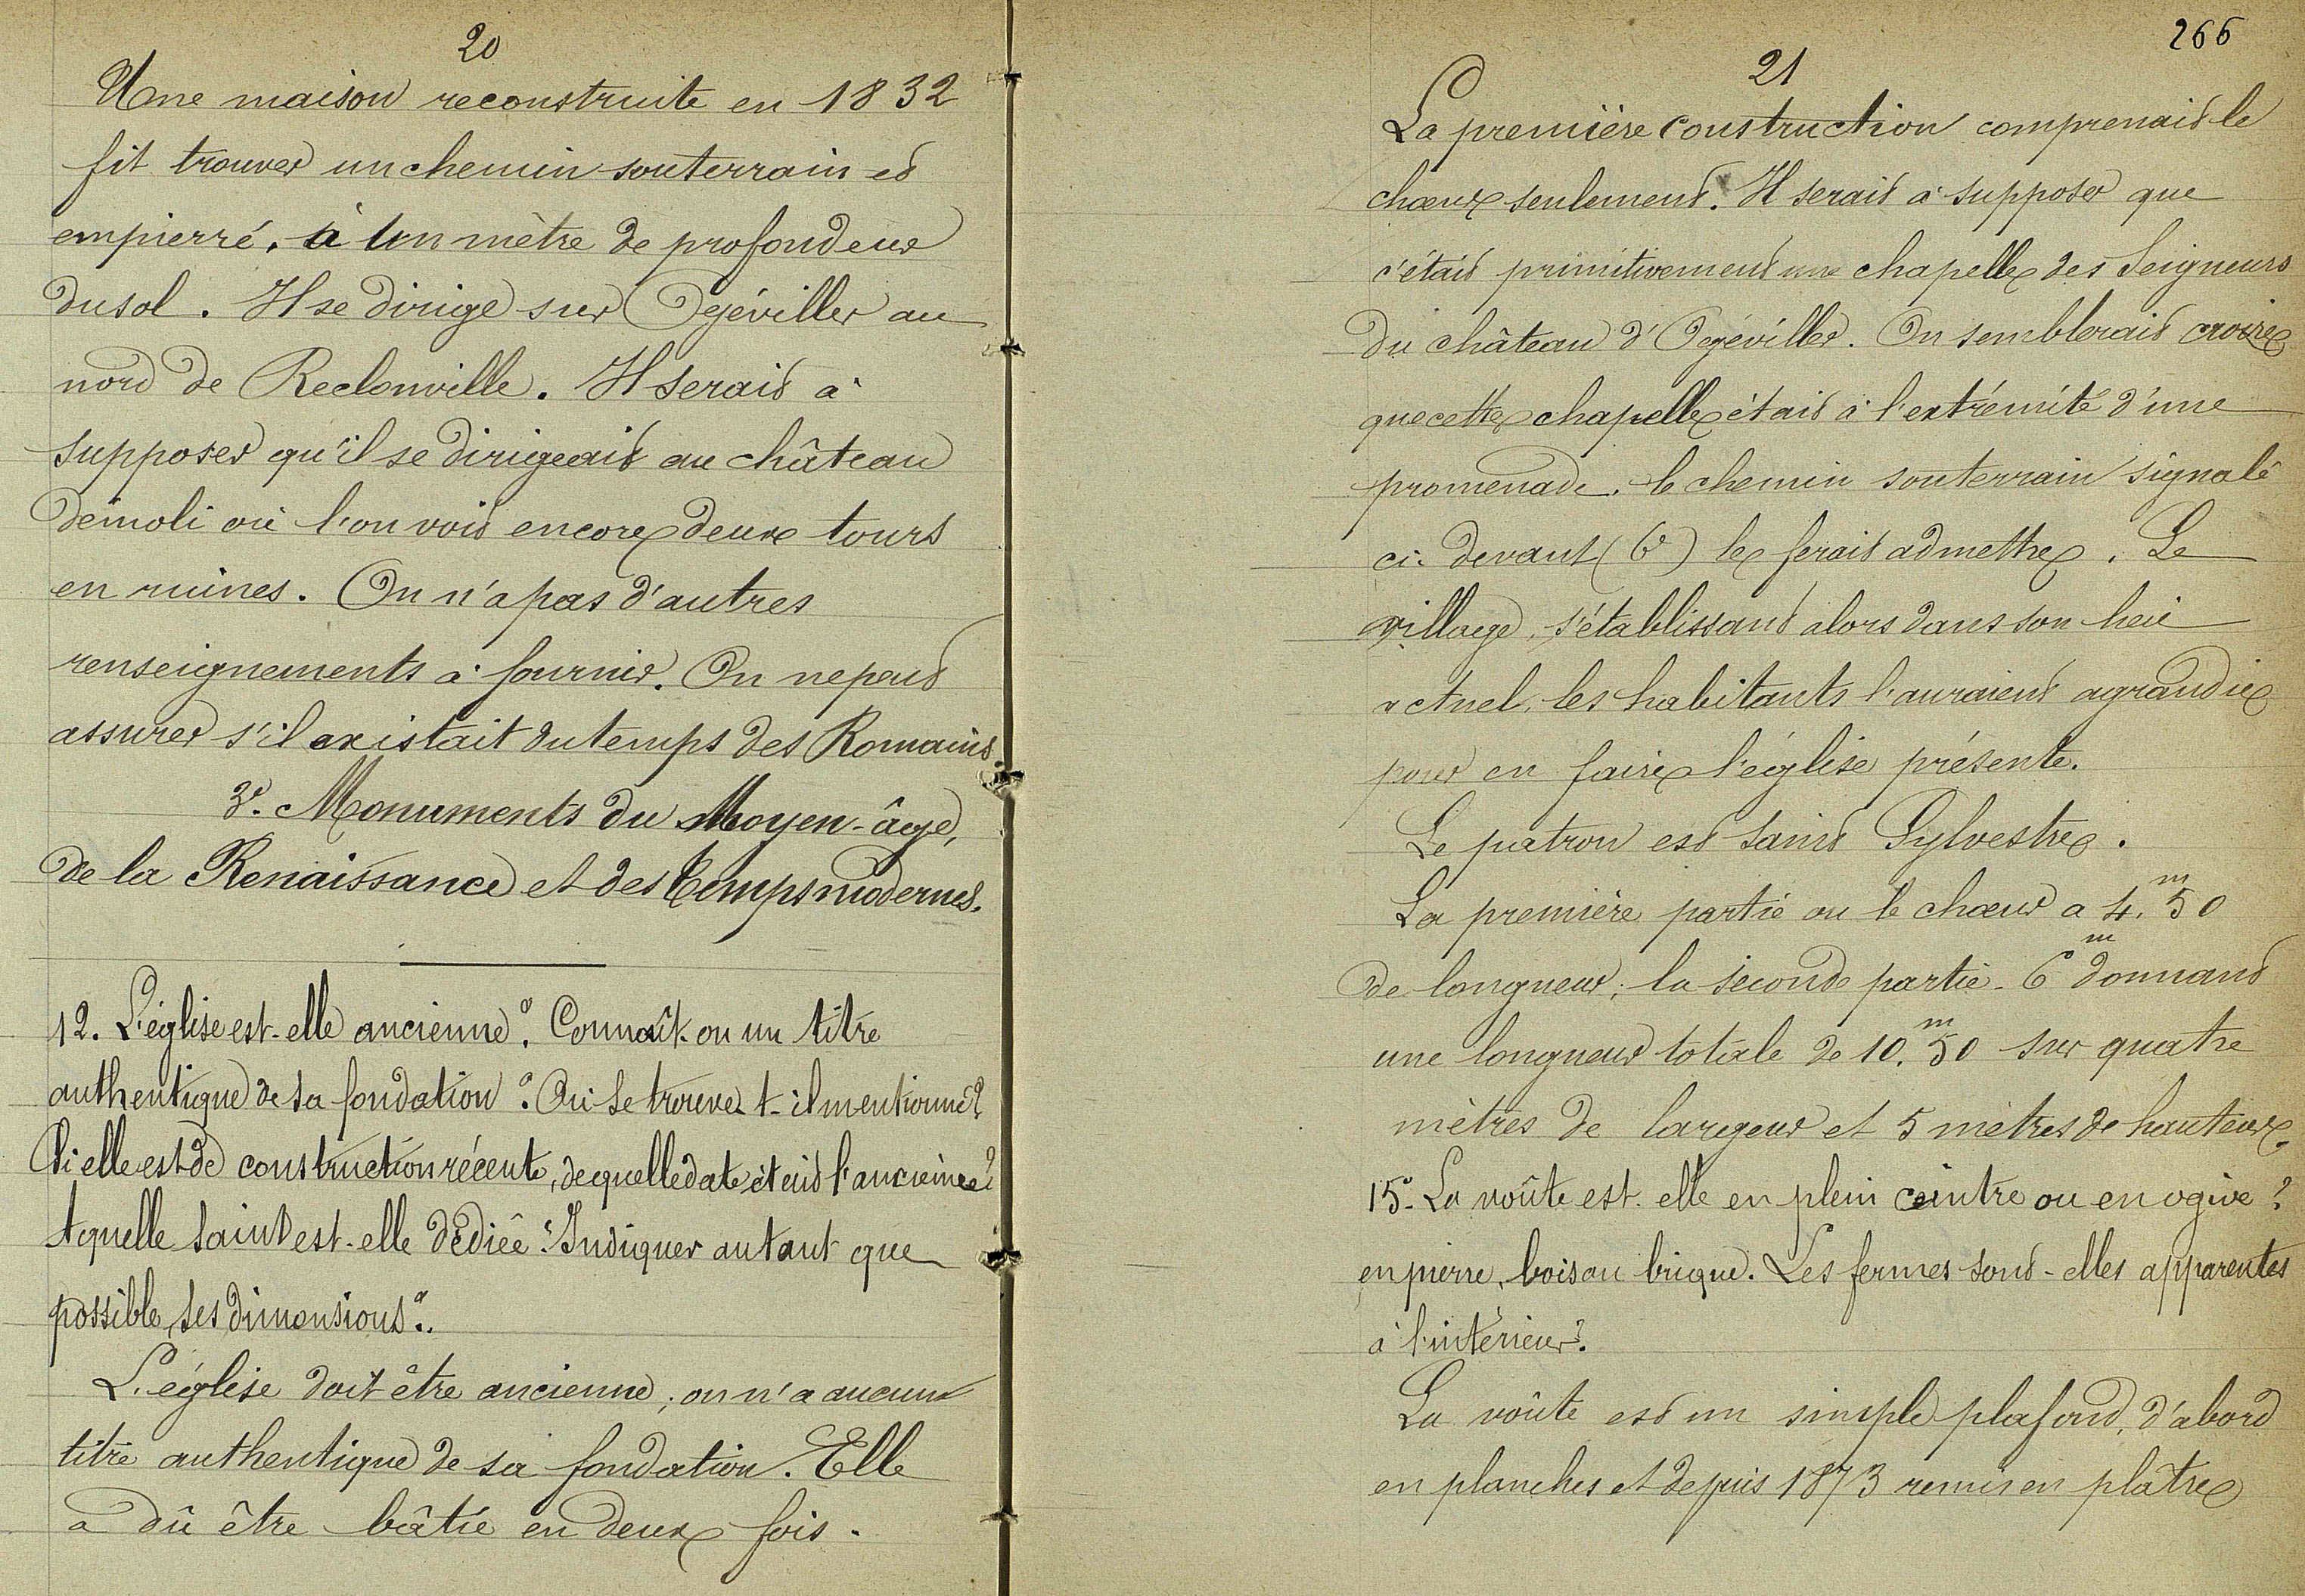 20
Une maison reconstruite en 1832
fit trouver un chemin souterrain et
empierré, à un mètre de profondeur
du sol. Il se dirige sur Ogéviller au
nord de Reclonville. Il serait à
supposer qu'il se dirigeait au château
démoli où l'on voit encore deux tours
en ruines. On n'a pas d'autres
renseignements à fournir. On ne peut
assurer s'il existait du temps des Romains.
3º. Monuments du Moyen-âge,
de la Renaissance et des temps modernes.
12. L'église est-elle ancienne? Connaît-on un titre
authentique de sa fondation? Où se trouve t-il mentionné?
Si elle est de construction récente, de quelle date était l'ancienne?
A quelle saint est-elle dédiée? Indiquer autant que
possible, ses dimensions?.
L'église doit être ancienne; on n'a aucun
titre authentique de sa fondation. Elle
a dû être bâtie en deux fois.
266
21
La première construction comprenait le
chœur seulement. Il serait à supposer que
c'était primitivement une chapelle des Seigneurs
du château d'Ogéviller. On semblerait croire
que cette chapelle était à l'extrémité d'une
promenade. le chemin souterrain signalé
ci-devant (6º) le ferait admettre. Le
village, s'établissant alors dans son lieu
actuel, les habitants l'auraient agrandie
pour en faire l'église présente.
Le patron est saint Sylvestre.
La première partie ou le chœur a 4.m50
de longueur; la seconde partie 6m donnant
une longueur totale de 10.m50 sur quatre
mètres de largeur et 5 mètres de hauteur.
15º. La voûte est-elle en plein ceintre ou en ogive?
en pierre, bois ou brique. Les fermes sont-elles apparentes
à l'intérieur?
La voûte est un simple plafond, d'abord
en planches et depuis 1873 remis en plâtre